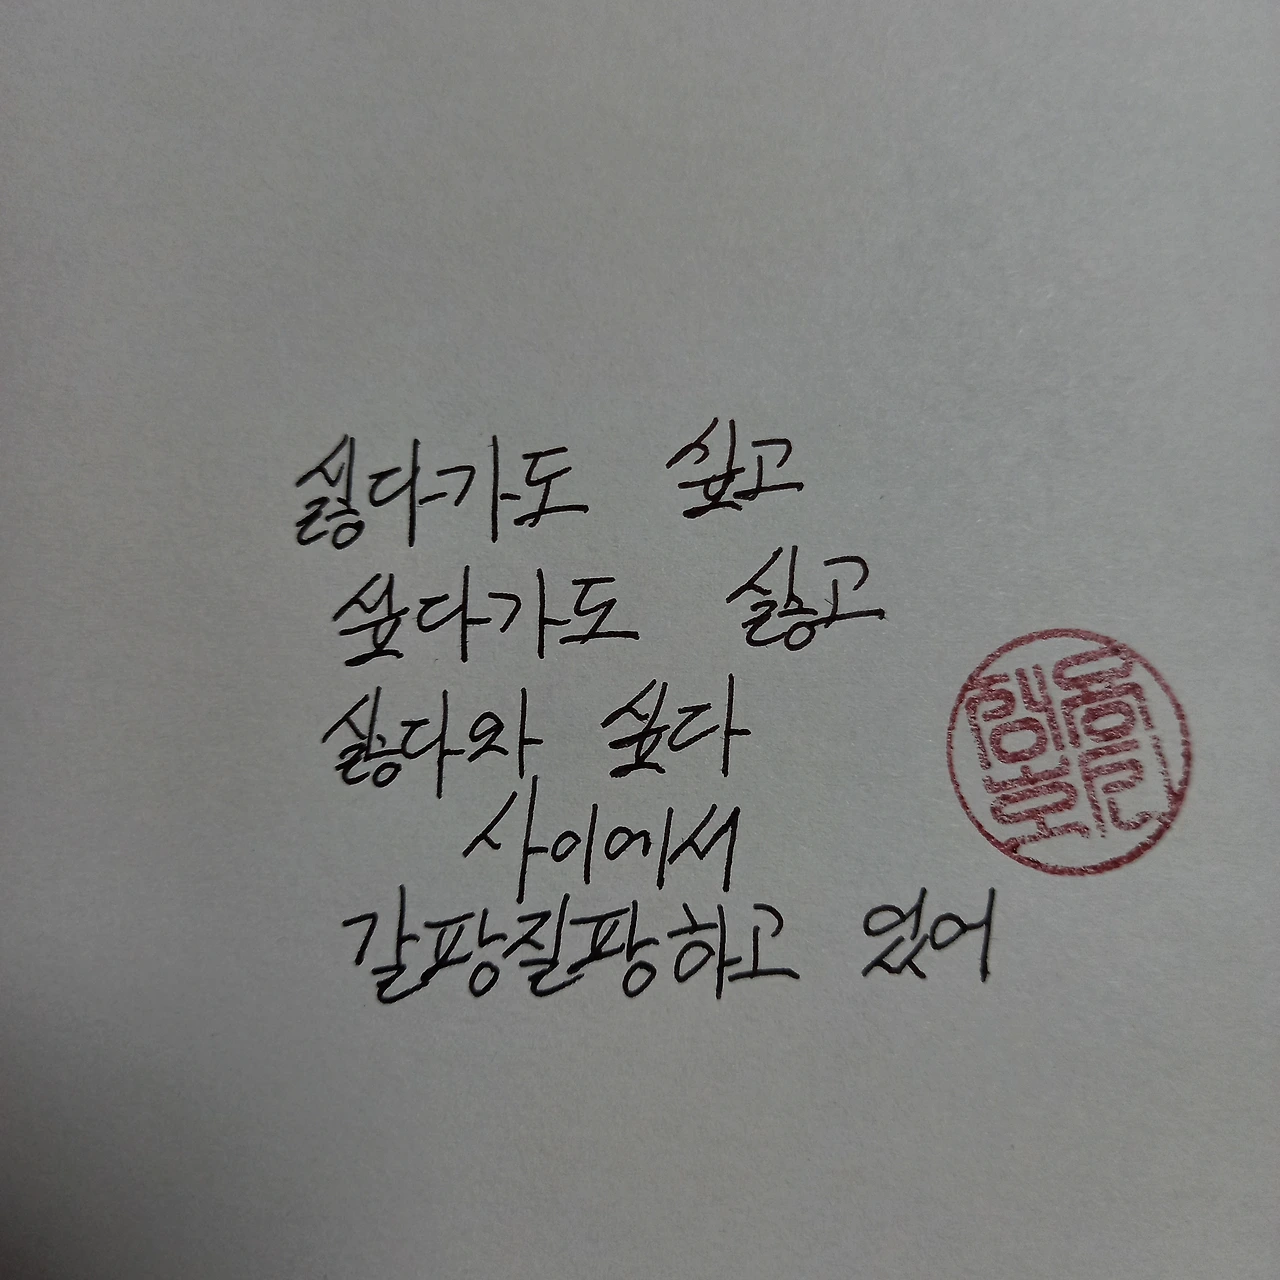 싫다가도 싶고
싶다가도 싫고
싫다와 싶다
사이에서
갈팡질팡하고 있어